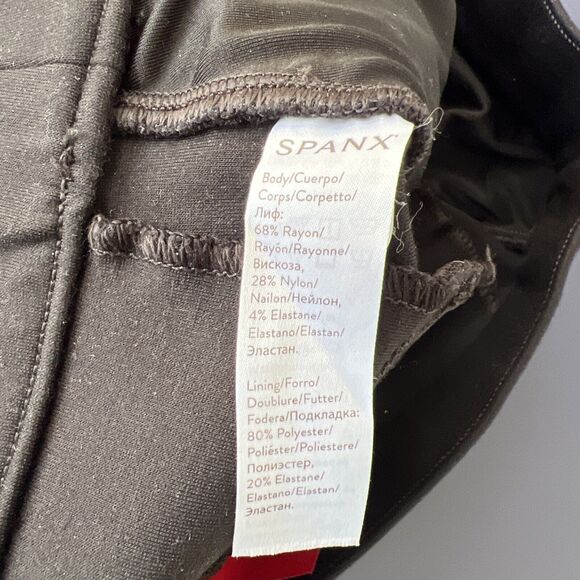 SPANX®
Body/Cuerpo/
Corps/Corpetto/
Лиф:
68% Rayon/
Rayón/Rayonne/
Вискоза,
28% Nylon/
Nailon/Нейлон,
4% Elastane/
Elastano/Elastan/
Эластан.
Lining/Forro/
Doublure/Futter/
Fodera/Подкладка:
80% Polyester/
Poliéster/Poliestere/
Полиэстер,
20% Elastane/
Elastano/Elastan/
Эластан.